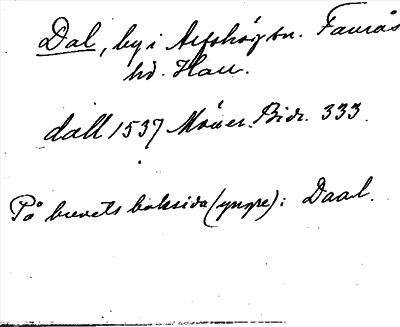 Dal, by i Arfshög sn. Faurås
hd. Hall.
dall 1537 Möller Bidr. 333.
På brevets baksida (yngre): Daal.